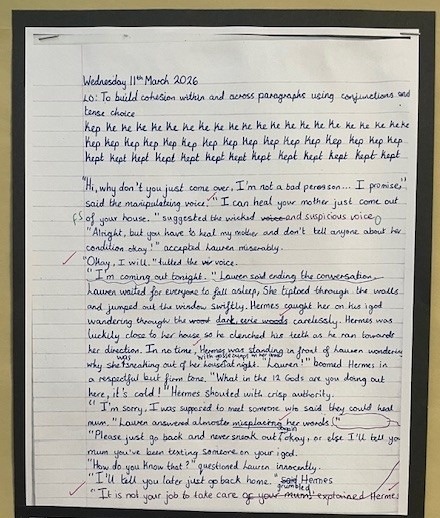 Wednesday 11th March 2026
LO: To build cohesion within and across paragraphs using conjunctions and
tense choice
Kep Ke Ke Ke Ke Ke Ke Ke Ke Ke Ke Ke Ke Ke Ke Ke Ke Ke
Kep Kep Kep Kep Kep Kep Kep Kep Kep Kep Kep Kep Kep
Kept Kept Kept Kept Kept Kept Kept Kept Kept Kept Kept
"Hi, why don't you just come over, I'm not a bad pereson... I promise,"
said the manipulating voice." I can heal your mother just come out
of your house." suggested the wicked voice and suspicious voice
"Alright, but you have to heal my mother and don't tell anyone about her
condition okay!" accepted Lauren miserably.
"Okay, I will." the voice.
"I'm coming out tonight." Lauren said ending the conversation
Lauren waited for everyone to fall asleep, She tiptoed through the walls
and jumped out the window swiftly. Hermes caught her on his igod
wandering through the wood dark, eerie woods carelessly. Hermes was
luckily close to her house so he clenched his teeth as he ran towards
her direction. In no time, Hermes was standing in front of Lauren wondering
why she was sneaking out of her house at night. "Lauren!" boomed Hermes in
a respectful but firm tone. "What in the 12 Gods are you doing out
here, it's cold!" Hermes shouted with crisp authority.
"I'm sorry, I was supposed to meet someone who said they could heal
mum." Lauren answered almost misplacing her words
"Please just go back and never sneak out again okay, or else I'll tell you
mum you've been texting someone on your igod.
"How do you know that?" questioned Lauren innocently.
"I'll tell you later just go back home." said grumbled Hermes
"It is not your job to take care of your mum" explained Hermes